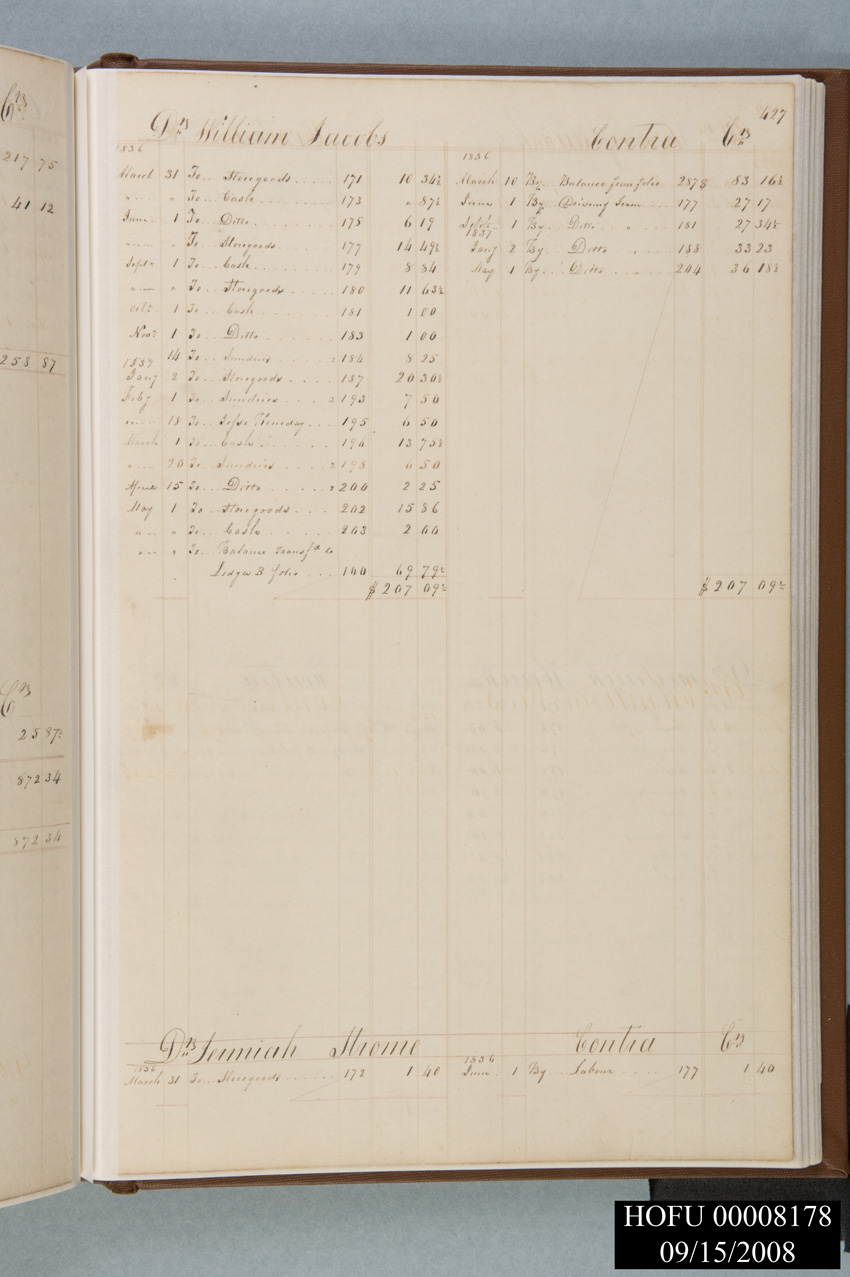 Cr
217 75
41 12
258 87
Cr
25 87½
872 34
872 34
427
Dr William Jacobs Contra Cr
1836 1836
March 31 To Storegoods 171 10 34½ March 10 By Balance from folio 287 83 16½
" " To Cash 173 " 87½ June 1 By Driving Team 177 27 17
June 1 To Ditto 175 6 19 Septr 1 By Ditto " 181 27 34½
" " To Storegoods 177 14 49½ 1837 Jany 2 By Ditto " 188 33 23
Septr 1 To Cash 179 8 84 May 1 By Ditto " 204 36 18½
" " To Storegoods 180 11 63½
Octr 1 To Cash 181 1 00
Novr 1 To Ditto 183 1 00
" 14 To Sundries 2 184 8 25
1837
Jany 2 To Storegoods 187 20 30½
Feby 1 To Sundries 2 193 7 50
" 18 To Jesse 195 6 50
March 1 To Cash 196 13 75½
" 20 To Sundries 2 198 6 50
April 15 To Ditto 2 200 2 25
May 1 To Storegoods 202 15 86
" " To Cash 203 2 00
" " To Balance transfd to
Ledger B folio 100 69 79½
$207 09½ $207 09½
Dr Jeremiah Strome Contra Cr
1836 1836
March 31 To Storegoods 172 1 40 June 1 By Labour 177 1 40
HOFU 00008178
09/15/2008